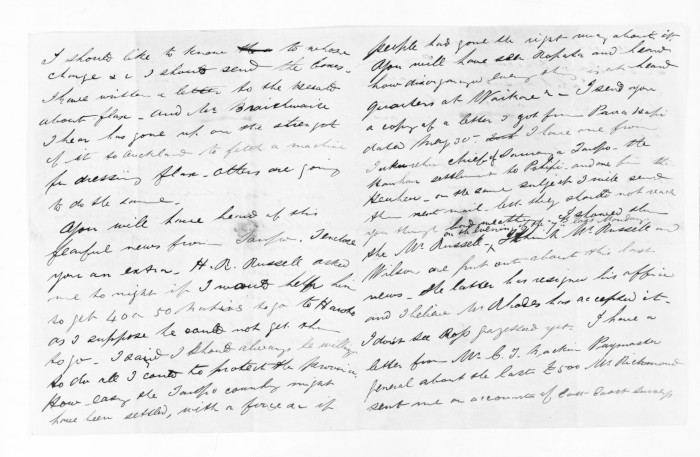 I should like to know to whose
charge &c I should send the boxes.
I have written a letter to the Herald
about flax - and Mr Braithwaite
I hear has gone up on the strength
of it to Auckland to fetch a machine
for dressing flax. Others are going
to do the same.
You will have heard of this
fearful news from Taupo. I enclose
you an extra. H. R. Russell asked
me to night if I would help him
to get 40 or 50 natives to go to
as I suppose he could not get them
to go - I said I should always be willing
to do all I could to protect the province.
How easy the Taupo country might
have been settled, with a force or if
people had gone the right way about it
You will have seen Ropata and heard
how disorganized every thing is at head
quarters at Wairoa - I send you
a copy of a letter I got from
dated May 30. I have one from
chief of Taupo. the
settlement to and me from the
Hauhau - on the same subject I will send
them next mail lest they should not reach
you though had meeting I showed them
on the evening of Monday
the Mr Russell, I think Mr Russell and
Wilson are put out about this last
news - the latter has resigned his office
and I believe Mr Rhodes has accepted it -
I don't see Ross gazetted yet. I have a
letter from Mr C. T. Paymaster
General about the last £500 Mr Richmond
sent me on accounts of East Coast surveys